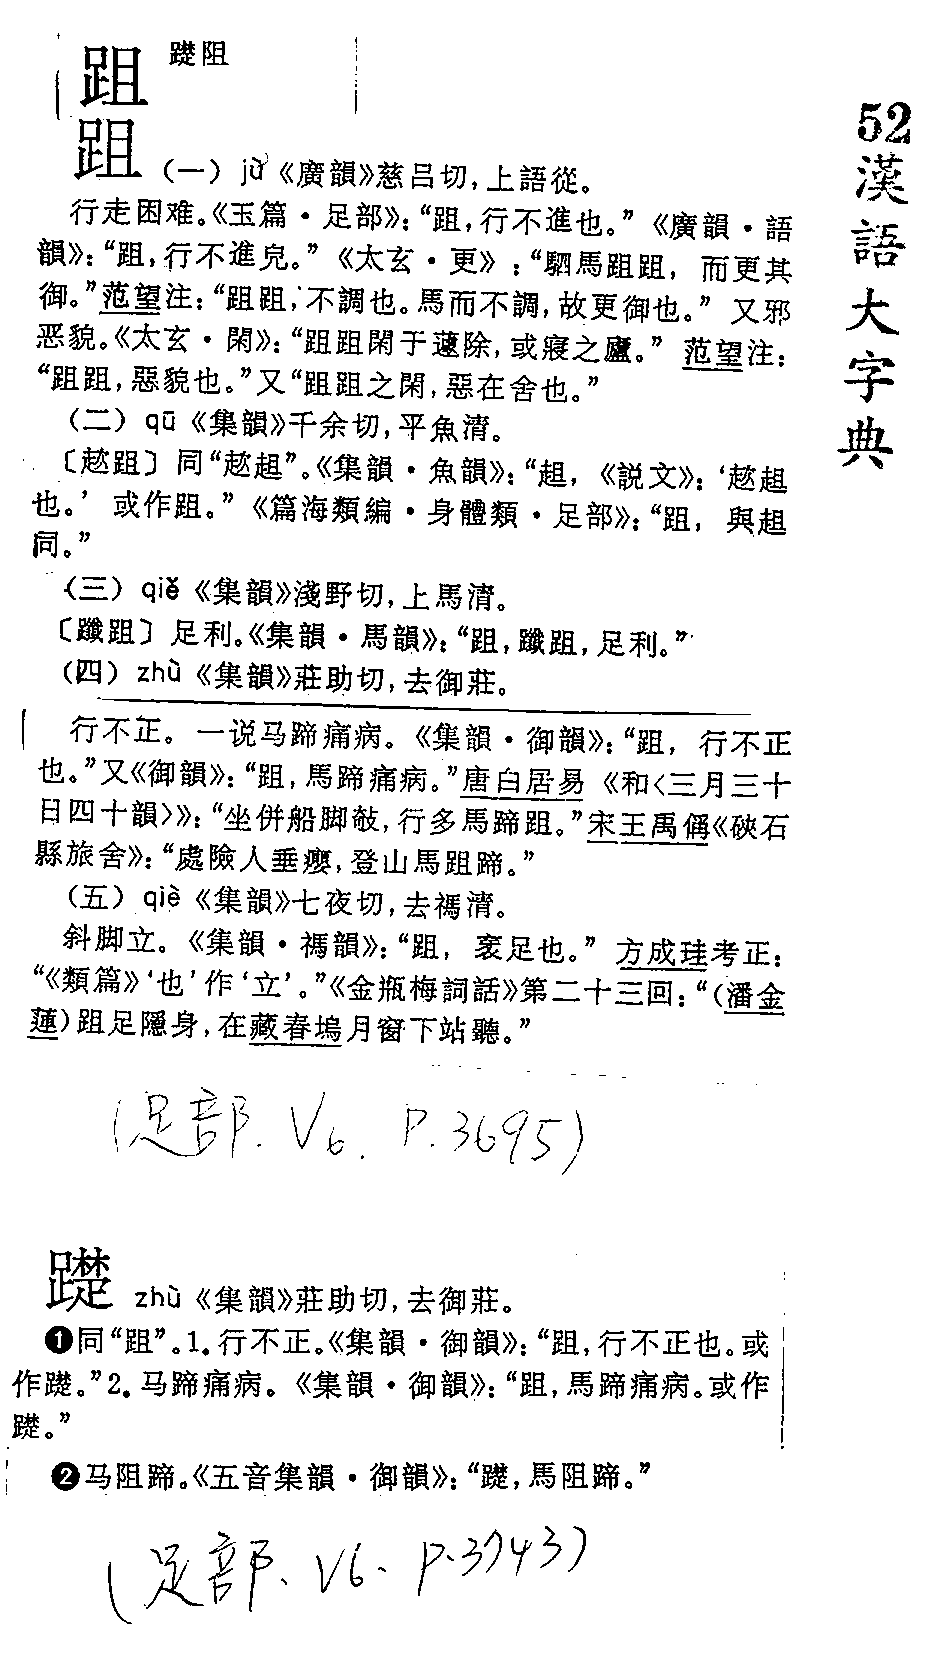 跙 䠂阻
52漢語大字典
跙 （一）jù《廣韻》慈吕切，上語從。
行走困难。《玉篇·足部》：“跙，行不進也。”《廣韻·語
韻》：“跙，行不進皃。”《太玄·更》：“駟馬跙跙，而更其
御。”范望注：“跙跙，不調也。馬而不調，故更御也。”又邪
恶貌。《太玄·閑》：“跙跙閑于蘧除，或寢之廬。”范望注：
“跙跙，惡貌也。”又“跙跙之閑，惡在舍也。”
（二）qū《集韻》千余切，平魚清。
〔趑跙〕同“趑趄”。《集韻·魚韻》：“趄，《説文》：‘趑趄
也。’或作跙。”《篇海類編·身體類·足部》：“跙，與趄
同。”
（三）qiě《集韻》淺野切，上馬清。
〔躥跙〕足利。《集韻·馬韻》：“跙，躥跙，足利。”
（四）zhù《集韻》莊助切，去御莊。
行不正。一说马蹄痛病。《集韻·御韻》：“跙，行不正
也。”又《御韻》：“跙，馬蹄痛病。”唐白居易《和〈三月三十
日四十韻〉》：“坐併船脚攲，行多馬蹄跙。”宋王禹偁《硤石
縣旅舍》：“處險人垂癭，登山馬跙蹄。”
（五）qiè《集韻》七夜切，去禡清。
斜脚立。《集韻·禡韻》：“跙，衺足也。”方成珪考正：
“《類篇》‘也’作‘立’。”《金瓶梅詞話》第二十三回：“（潘金
蓮）跙足隱身，在藏春塢月窗下站聽。”
（足部. V6. P.3695）
䠂 zhù《集韻》莊助切，去御莊。
❶同“跙”。1.行不正。《集韻·御韻》：“跙，行不正也。或
作䠂。”2.马蹄痛病。《集韻·御韻》：“跙，馬蹄痛病。或作
䠂。”
❷马阻蹄。《五音集韻·御韻》：“䠂，馬阻蹄。”
（足部. V6. P.3743）